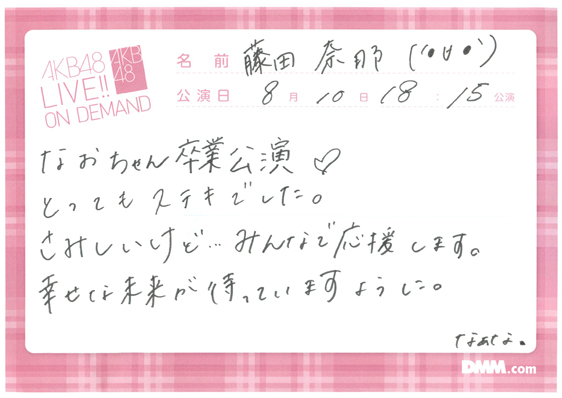 AKB48
LIVE!!
ON DEMAND
AKB
48
名前 藤田 奈那 (´•ᴗ•`)
公演日 8月10日18:15公演
なおちゃん卒業公演♡
とってもステキでした。
さみしいけど…みんなで応援します。
幸せな未来が待っていますように。
なぁな。
DMM.com